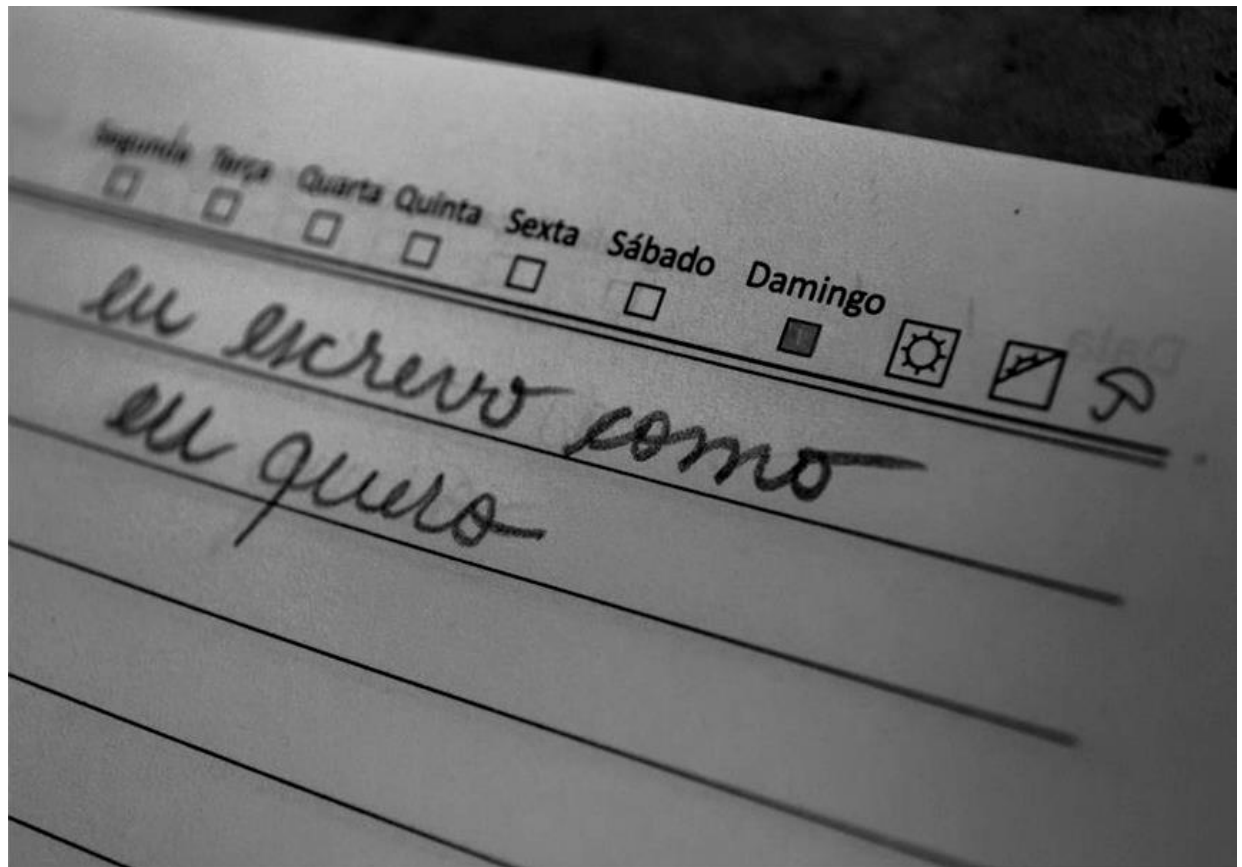 Segunda Terça Quarta Quinta Sexta Sábado Damingo
eu escrevo como
eu quero